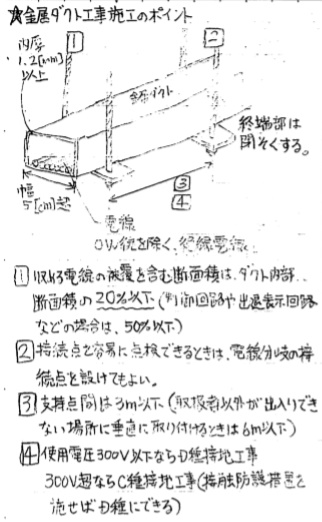 ☆金属ダクト工事施工のポイント
1
2
内厚
1.2[mm]
以上
金属ダクト
終端部は
閉そくする。
3
4
幅
5[cm]超
電線
OW線を除く、絶縁電線
1 収める電線の被覆を含む断面積は、ダクト内部
断面積の20%以下(制御回路や出退表示回路
などの場合は、50%以下)
2 接続点を容易に点検できるときは、電線分岐の接
続点を設けてもよい。
3 支持点間は3m以下(取扱者以外が出入りでき
ない場所に垂直に取り付けるときは6m以下)
4 使用電圧300V以下ならD種接地工事
300V超ならC種接地工事(接触防護措置を
施せばD種にできる)